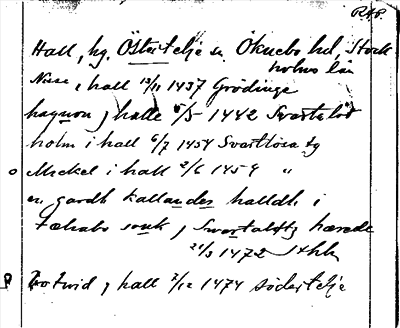 RAP.
Hall, hg. Östertelje sn Öknebo hd, Stock-
holms län
Nisse, hall 13/11 1437 Grödinge
haquon j halle 5/5 1442 Svartelöt
holm i hall 6/7 1454 Svartlösa hg
Mickel i hall 2/6 1459 "
en gardh kallandes halldh i
sonk j Swartalsty hærede
21/3 1472 Sthlm
Botvid j hall 7/12 1474 södertelje